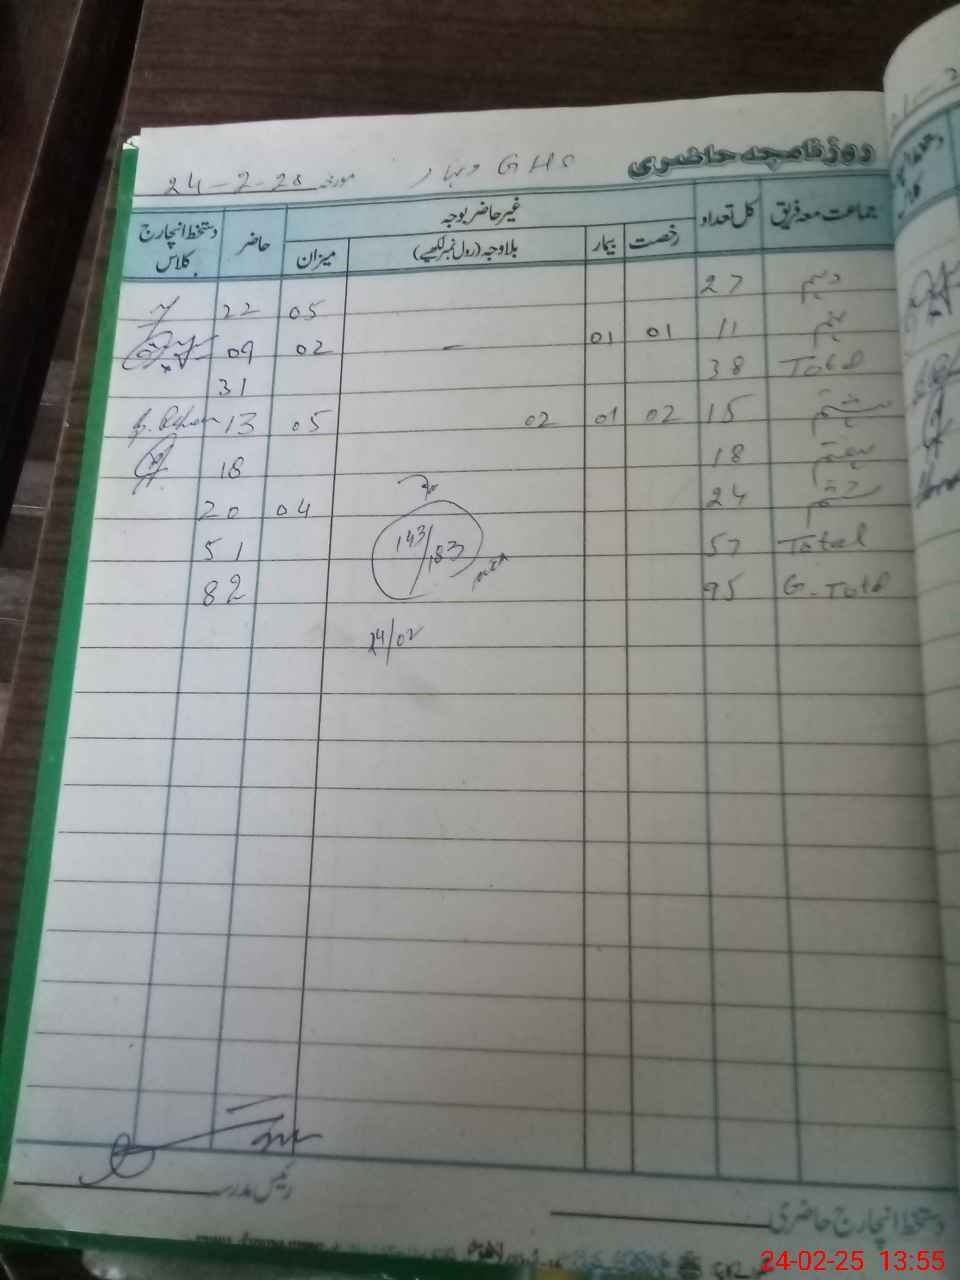 روزنامچہ حاضری GHS مورخہ 24-2-20
جماعت معہ فریق کل تعداد غیر حاضر بوجہ حاضر دستخط انچارج کلاس
رخصت بیمار بلاوجہ (رول نمبر لکھیے) میزان
دہم 27 05 22
نہم 11 01 01 - 02 09
Total 38 31
ہشتم 15 02 01 02 05 13
ہفتم 18 18
ششم 24 04 20
Total 57 51
G. Total 95 82
143/183
24/02
رئیس مدرسہ
دستخط انچارج حاضری
24-02-25 13:55